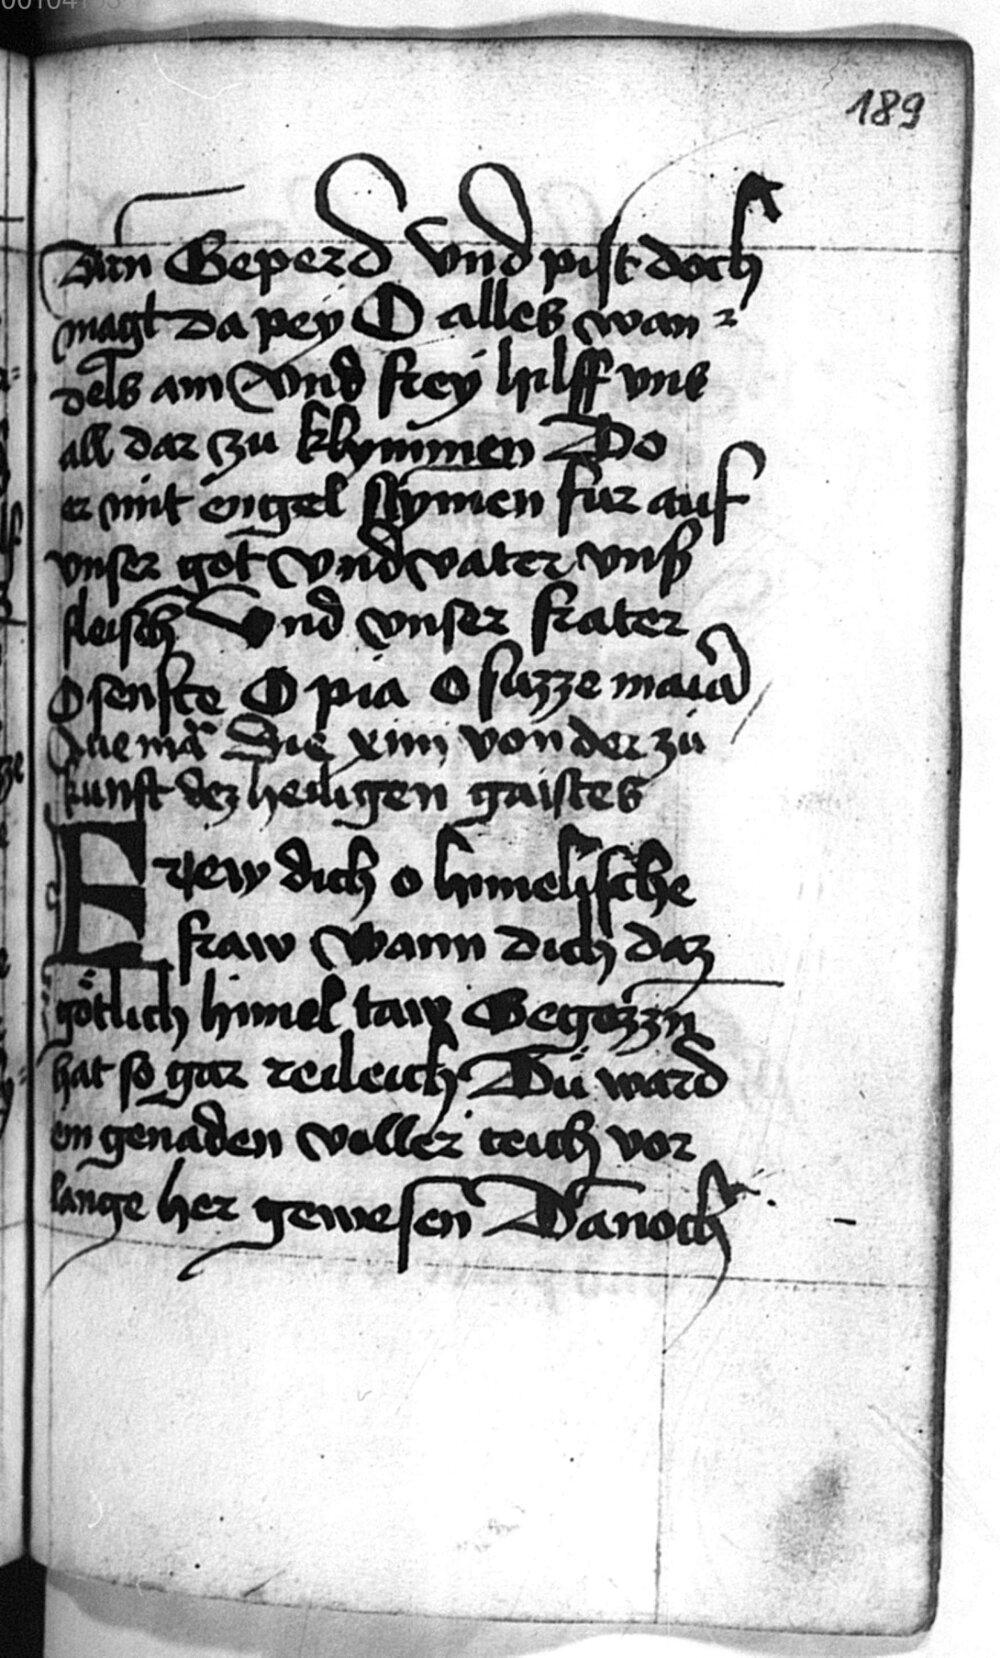 189
Dein Geperd vnd pist doch
magt da pey O alles wan⸗
dels am vnd frey hilff vns
all dar zu klymmen Do
er mit engel stymen fur auf
vnser got vnd vater vnß
fleisch Vnd vnser frater
O senfte O pia O suzze maria
Aue mā Die xiiij von der zu
kunft dez heiligen gaistes
Frew dich o himelische
fraw Wann dich daz
götlich himel taw Begozzn
hat so gar reileich Du ward
ein genaden voller teich vor
lange her gewesen Dannoch